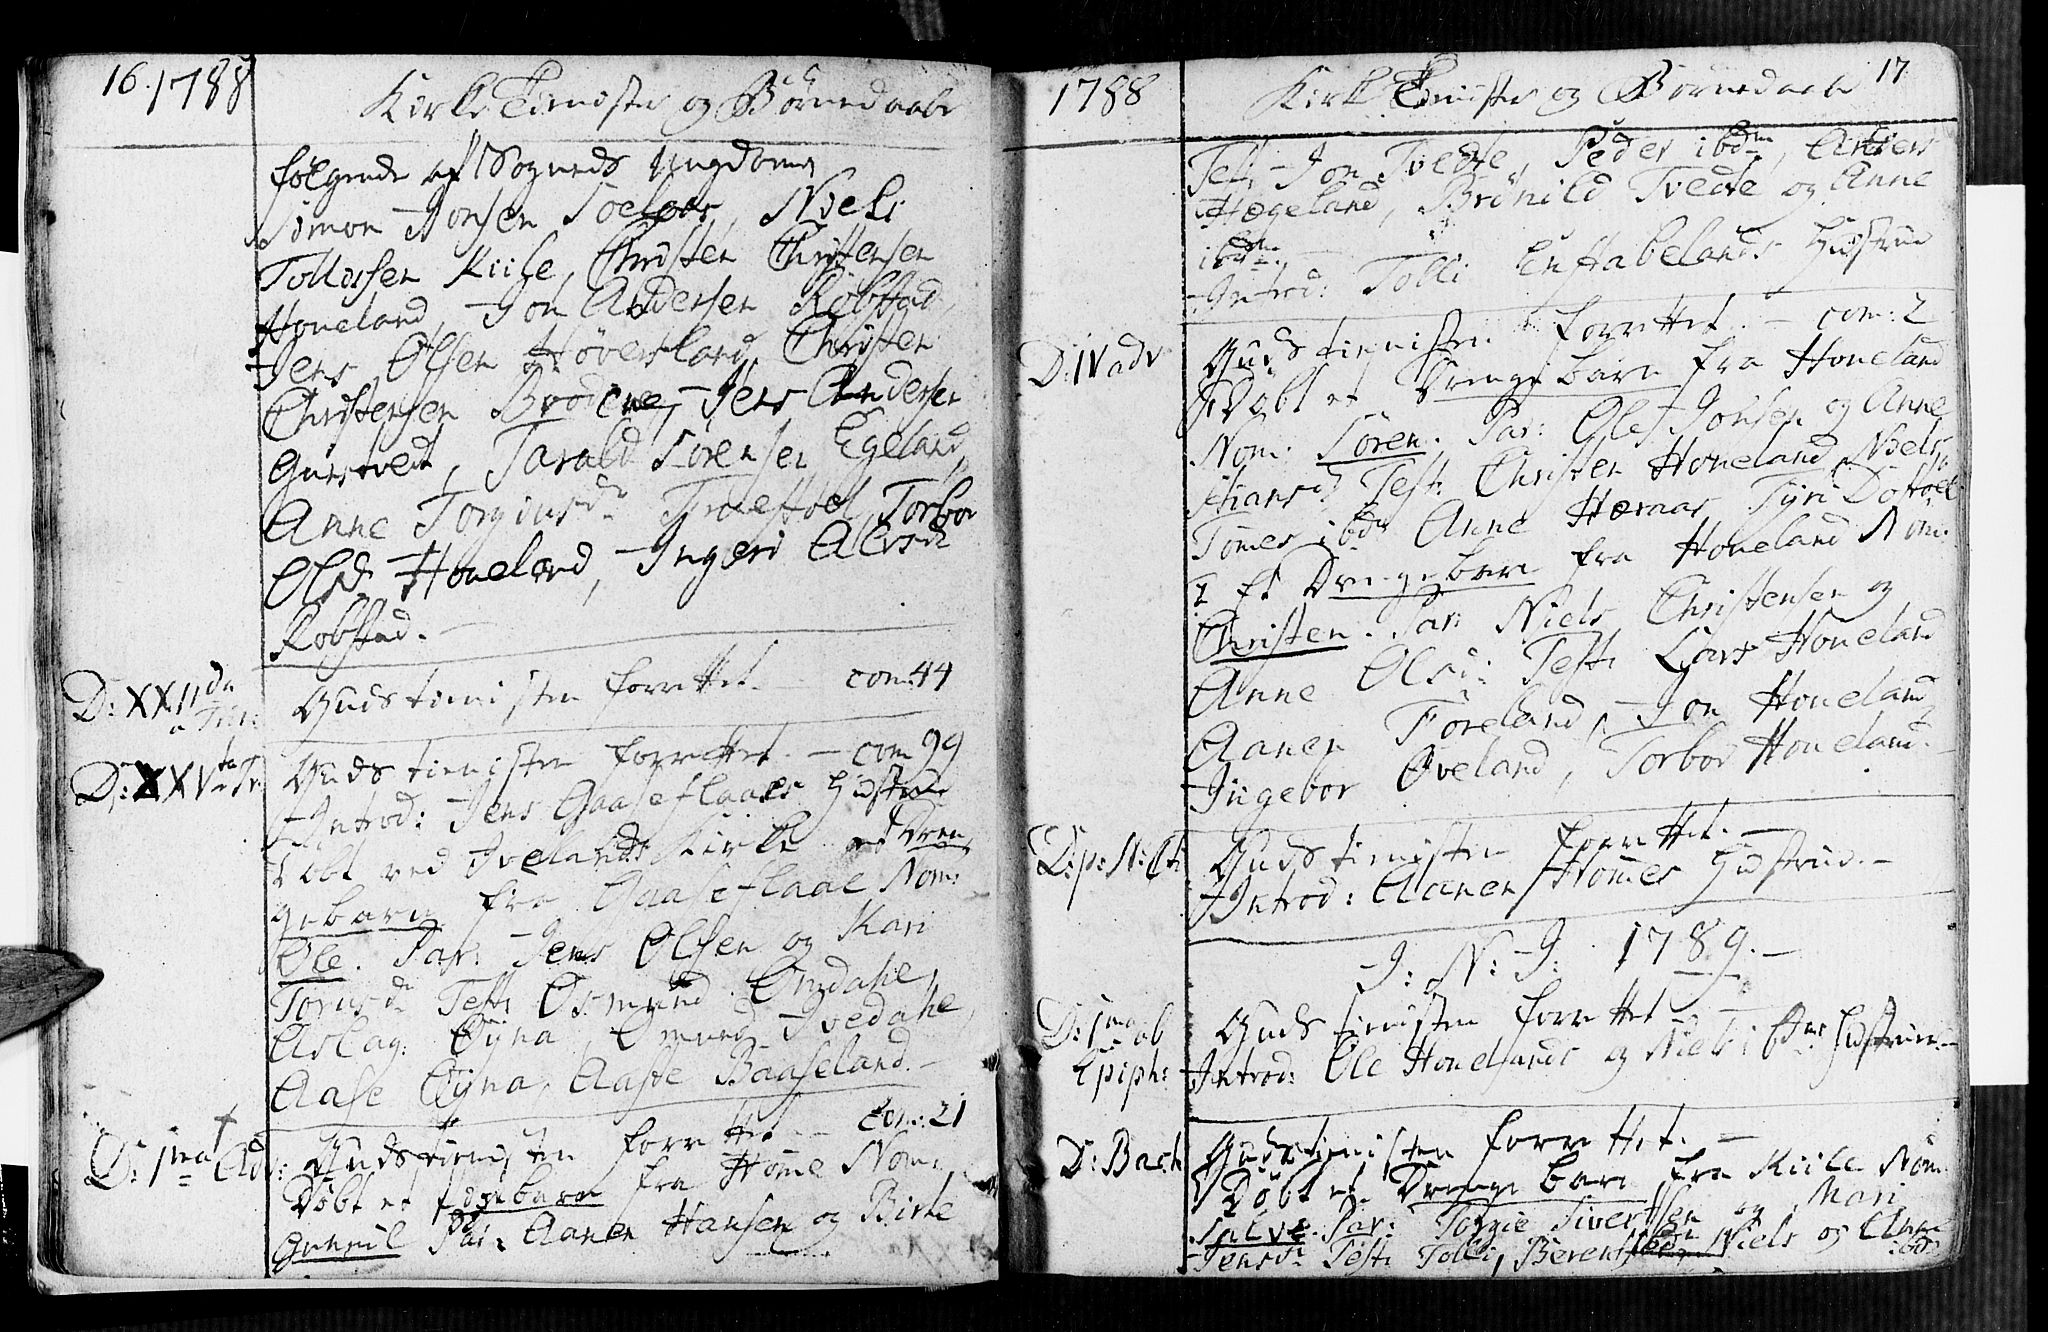 16. 1788
Kirke Tieniste og Børnedaabe
følgende af Sognets Ungdom
Simon Jonsen Toelaas, Nieli
Tollissen Kiile, Christen Christensen
Honeland, Jon Andersen Robstad,
Jens Olsen Høversland, Christen
Christensen Brødene, Jens Andersen
Gurstvedt, Tarald Sørensen Egeland,
Anne Torgiusdr Træftoel, Torbor
Olsd. Honeland, Ingeri Alvsdr
Robstad.
D: XXIIda a Trin: Guds tienisten forrettet. - com: 44
D: XXVta Tr. Guds tienisten forrettet. - com 99
Introd: Jens Gaaseflaaes Hustrue
Døbt ved Ivelands Kirke et Dren
gebarn fra Gaaseflaae Nom:
Ole. Par: Jens Olsen og Kari
Torusdr Test: Osmund Omdahl,
Aslag Øyna, Omund Ivedahl,
Aase Øyna, Aaste Baaseland. -
D: 1ma Adv: Guds tienisten forrettet - com: 21
Døbt et Pigebarn fra Home Nom:
Gunvil Par: Aanen Hansen og Birte
1788 Kirke Tieniste og Børnedaabe 17
Test: Jon Tvedte, Peder ibdm, Anders
Hægeland, Brønild Tvedte og Anne
ibdm. -
Introd: Tolli Enstabelands Hustrue
D: IV adv Guds tienisten forrettet. - com: 2
Døbt et Drengebarn fra Honeland
Nom: Søren. Par: Ole Jonsen og Anne
Hansd. Test: Christen Honeland, Niels,
Tomes ibdm Anne Heraas, Tyri Dostøel
2 Et Drengebarn fra Honeland Nom:
Christen. Par: Niels Christensen og
Anne Olsd: Test: Lars Honeland
Aanen Foreland, Jon Honeland,
Ingebor Øveland, Torbor Honeland. -
D: p: N: Cti Guds tienisten forrettet. -
Introd: Aanen Homes Hustrue. -
J: N: J: 1789. -
D: 1ma ab Guds tienisten forrettet -
Epiph: Introd: Ole Honelands og Niels ibdm Hustruer. -
D: Bach Gudstienisten forrettet. -
Døbt et Drengebarn fra Kiile Nom:
Salve. Par: Torgie Sivertsen og Mari
Jensdr Test: Tolli, Berent, Niels og Anne
ibd